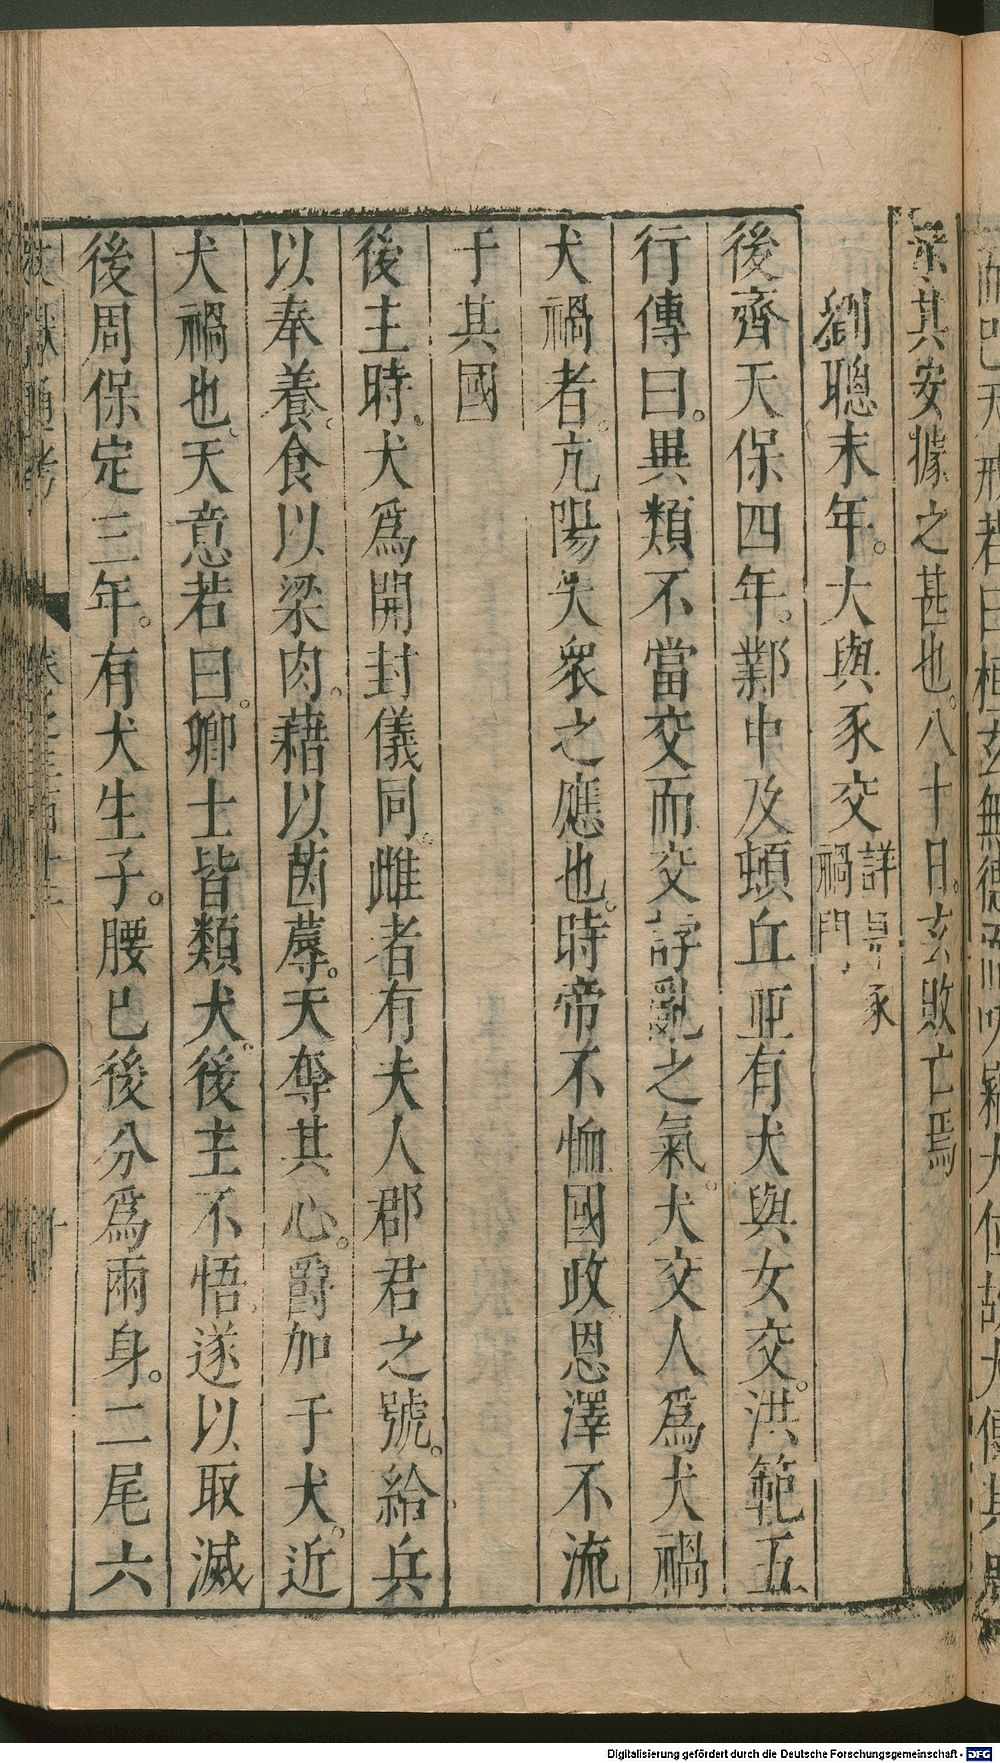 其安據之甚也。八十日。玄敗亡焉
劉聰末年。犬與豕交
詳見豕
禍門
後齊天保四年。鄴中及頓丘並有犬與女交。洪範五
行傳曰。異類不當交而交諄亂之氣。犬交人爲犬禍
犬禍者。亢陽失衆之應也。時帝不恤國政恩澤不流
于其國
後主時。犬爲開封儀同。雌者有夫人郡君之號。給兵
以奉養。食以梁肉。藉以茵蓐。天奪其心。爵加于犬。近
犬禍也。天意若曰。卿士皆類犬。後主不悟。遂以取滅
後周保定三年。有犬生子。腰已後分爲兩身。二尾六
文獻通考
卷之三百十二
Digitalisierung gefördert durch die Deutsche Forschungsgemeinschaft - DFG